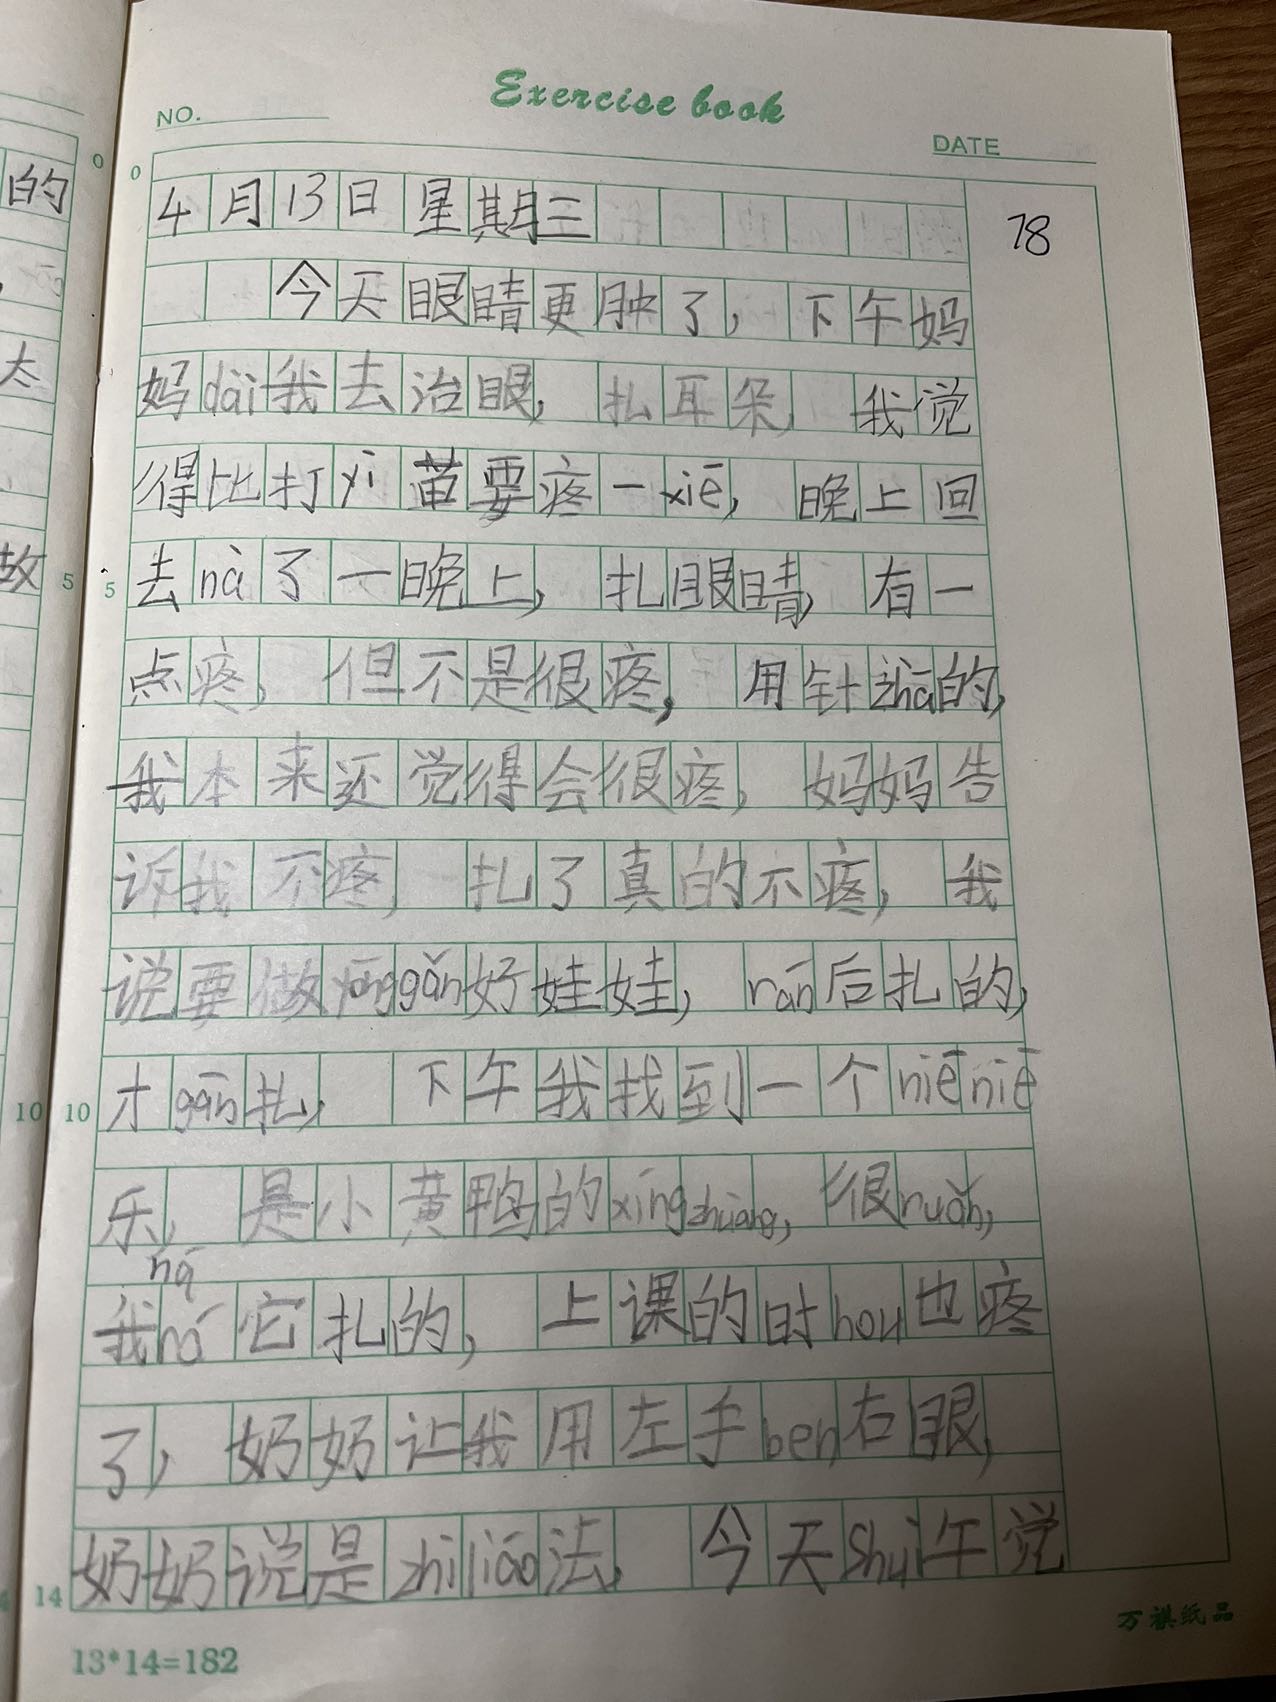 Exercise book
NO.
DATE
的
太
故
0
0
5
5
10
10
14
4月13日星期三
18
今天眼睛更肿了，下午妈
妈dài我去治眼，扎耳朵，我觉
得比打yì苗要疼一xiē，晚上回
去nà了一晚上，扎眼睛，有一
点疼，但不是很疼，用针zhā的，
我本来还觉得会很疼，妈妈告
诉我不疼，扎了真的不疼，我
说要做yǒnggǎn好娃娃，rán后扎的，
才gǎn扎，下午我找到一个niēniē
乐，是小黄鸭的xíngzhuàng，很ruǎn，
ná
我ná它扎的，上课的时hou也疼
了，奶奶让我用左手ben右眼，
奶奶说是zhìliáo法，今天shuì午觉
13*14=182
万祺纸品